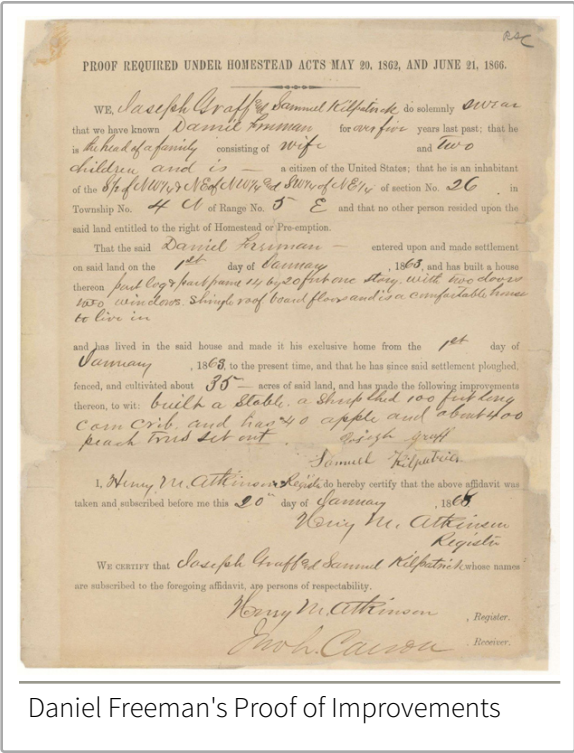 PROOF REQUIRED UNDER HOMESTEAD ACTS MAY 20, 1862, AND JUNE 21, 1866.
WE, Joseph Graff & Samuel Kilpatrick do solemnly swear
that we have known Daniel Freeman for over five years last past; that he
is the head of a family consisting of wife and two
children and is — a citizen of the United States; that he is an inhabitant
of the S½ of NW¼ & NE of NW¼ & SW¼ of NE¼ of section No. 26 in
Township No. 4 N of Range No. 5 E and that no other person resided upon the
said land entitled to the right of Homestead or Pre-emption.
That the said Daniel Freeman — entered upon and made settlement
on said land on the 1st day of January , 1863, and has built a house
thereon part log & part frame 14 by 20 feet one story, with two doors
two windows. shingle roof board floors and is a comfortable house
to live in
and has lived in the said house and made it his exclusive home from the 1st day of
January , 1863, to the present time, and that he has since said settlement ploughed,
fenced, and cultivated about 35 — acres of said land, and has made the following improvements
thereon, to wit: built a Stable. a Sheep shed 100 feet long
corn crib. and has 40 apple and about 400
peach trees set out.
Joseph Graff
Samuel Kilpatrick
I, Henry M. Atkinson Register do hereby certify that the above affidavit was
taken and subscribed before me this 20" day of January , 1868
Henry M. Atkinson
Register
WE CERTIFY that Joseph Graff & Samuel Kilpatrick whose names
are subscribed to the foregoing affidavit, are persons of respectability.
Henry M. Atkinson , Register.
, Receiver.
Daniel Freeman's Proof of Improvements